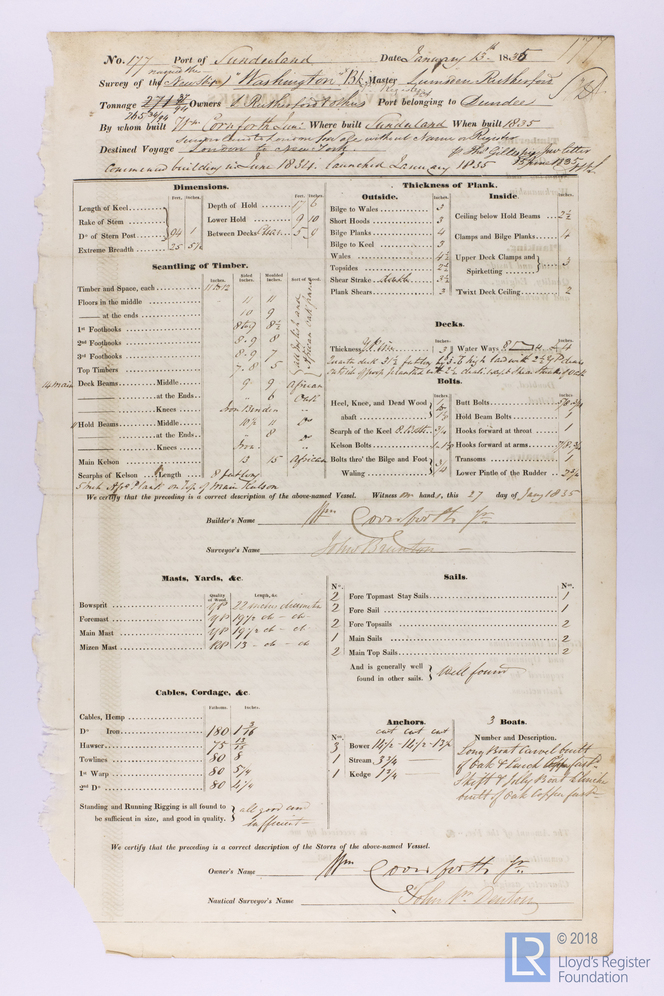 No. 177 Port of Sunderland Date January 13th 1835
177
Survey of the New Ship "Washington" Bk Master Lumsden Rutherford
named the
Tonnage Owners Rutherford & others Port belonging to Dundee
265
By whom built Wm. Cornforth Jun: Where built Sunderland When built 1835
Destined Voyage London to New York
Commenced building in June 1834. launched January 1835
Dimensions.
Feet. Inches.
Length of Keel
Rake of Stem
Do of Stern Post 94 1
Extreme Breadth 25 5½
Feet. Inches.
Depth of Hold 17 6
Lower Hold 9 10
Between Decks 5 9
Scantling of Timber.
Inches. Sided Inches. Moulded Inches. Sort of Wood.
Timber and Space, each
Floors in the middle 11 11
—— at the ends 10 9
1st Foothooks 8 & 9 8½
2nd Foothooks 8-9 8
3rd Foothooks 8-9 7
Top Timbers 7-8 5
14 main Deck Beams Middle 9 9 African
at the Ends " 6 Oak
Knees Iron
Hold Beams Middle 10½ 11 Do
at the Ends 8 Do
Knees Iron
Main Kelson 13 15 African
Scarphs of Kelson Length 8 feet
5 inch Plank on Top of main Kelson
Thickness of Plank.
Outside.
Inches.
Bilge to Wales 3
Short Hoods 3
Bilge Planks 4
Bilge to Keel 3
Wales 4½
Topsides
Shear Strake 3½
Plank Shears 3
Inside.
Inches.
Ceiling below Hold Beams 2½
Clamps and Bilge Planks 4
Upper Deck Clamps and
Spirketting 3
'Twixt Deck Ceiling 2
Decks.
Inches. Inches.
Thickness 3 Water Ways 4
Bolts.
Inches. Inches.
Heel, Knee, and Dead Wood
shaft
Scarph of the Keel 8 Bolts ¾
Kelson Bolts
Bolts thro' the Bilge and Foot
Waling ¾
Butt Bolts
Hold Beam Bolts
Hooks forward at throat 1
Hooks forward at arms
Transoms 1
Lower Pintle of the Rudder 2½
We certify that the preceding is a correct description of the above-named Vessel. Witness our hands, this 27 day of Jany 1835
Builder's Name Wm Cornforth Jr.
Surveyor's Name John Brunton
Masts, Yards, &c.
Quality of Wood. Length, &c.
Bowsprit YP 22 inches diameter
Foremast YP 19½ do - do
Main Mast YP 19½ do - do
Mizen Mast RP 13 - do - do
Sails.
No. No.
2 Fore Topmast Stay Sails 1
2 Fore Sail 1
2 Fore Topsails 2
1 Main Sails 2
2 Main Top Sails 2
And is generally well
found in other sails. Well found
Cables, Cordage, &c.
Fathoms. Inches.
Cables, Hemp
Do Iron 180 1 3/16
Hawser 75 13/16
Towlines 80 8
1st Warp 80 5¼
2nd Do 80 4¼
Standing and Running Rigging is all found to
be sufficient in size, and good in quality. all good and
Sufficient
Anchors.
cwt cwt cwt
No.
3 Bower 14½ - 14½ - 13½
1 Stream 3¾
1 Kedge 1¾
3 Boats.
Number and Description.
Long Boat Carvel built
of Oak & Larch Copper fast:
Skiff & Jolly Boat Clench
built of Oak Copper fast
We certify that the preceding is a correct description of the Stores of the above-named Vessel.
Owner's Name Wm Cornforth Jr.
Nautical Surveyor's Name John Wm Denton
LR
© 2018
Lloyd's Register
Foundation